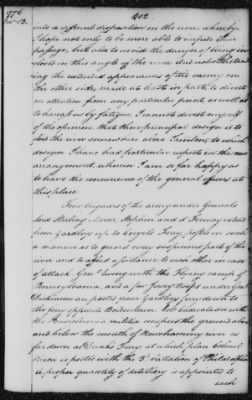 1776
Dec. 13.
402
into a different disposition on the river, whereby
I hope not only to be more able to impede their
passage, but also to avoid the danger of being in
closed in this angle of the river. And notwithstand
ing the extended appearances of the enemy on
the other side, made at least in part, to divert
our attention from any particular point as well as
to harass us by fatigue. I cannot divest myself
of the opinion, that their principal design is to
ford the river somewhere above Trenton; to which
design I have had particular respect in the new
arrangement, wherein I am so far happy as
to have the concurrence of the general officers at
this place.
Four brigades of the army under Generals
Lord Stirling, Mercer, Stephen and de Fermoy extend
from Yardleys up to Coryels Ferry, posted in such
a manner as to guard every suspicious part of the
river and to afford assistance to each other in case
of attack. Genl. Ewing with the Flying camp of
Pennsylvania, and a few Jersey troops under Genl.
Dickinson are posted from Yardleys ferry down to
the ferry opposite Bordentown. Col. Cadwalader with
the Pennsylvania militia occupies the ground above
and below the mouth of Neshaminy river as
far down as Dunks Ferry, at which place Colonel
Nixon is posted with the 3d. battalion of Philadelphia
A proper quantity of artillery is appointed to
each